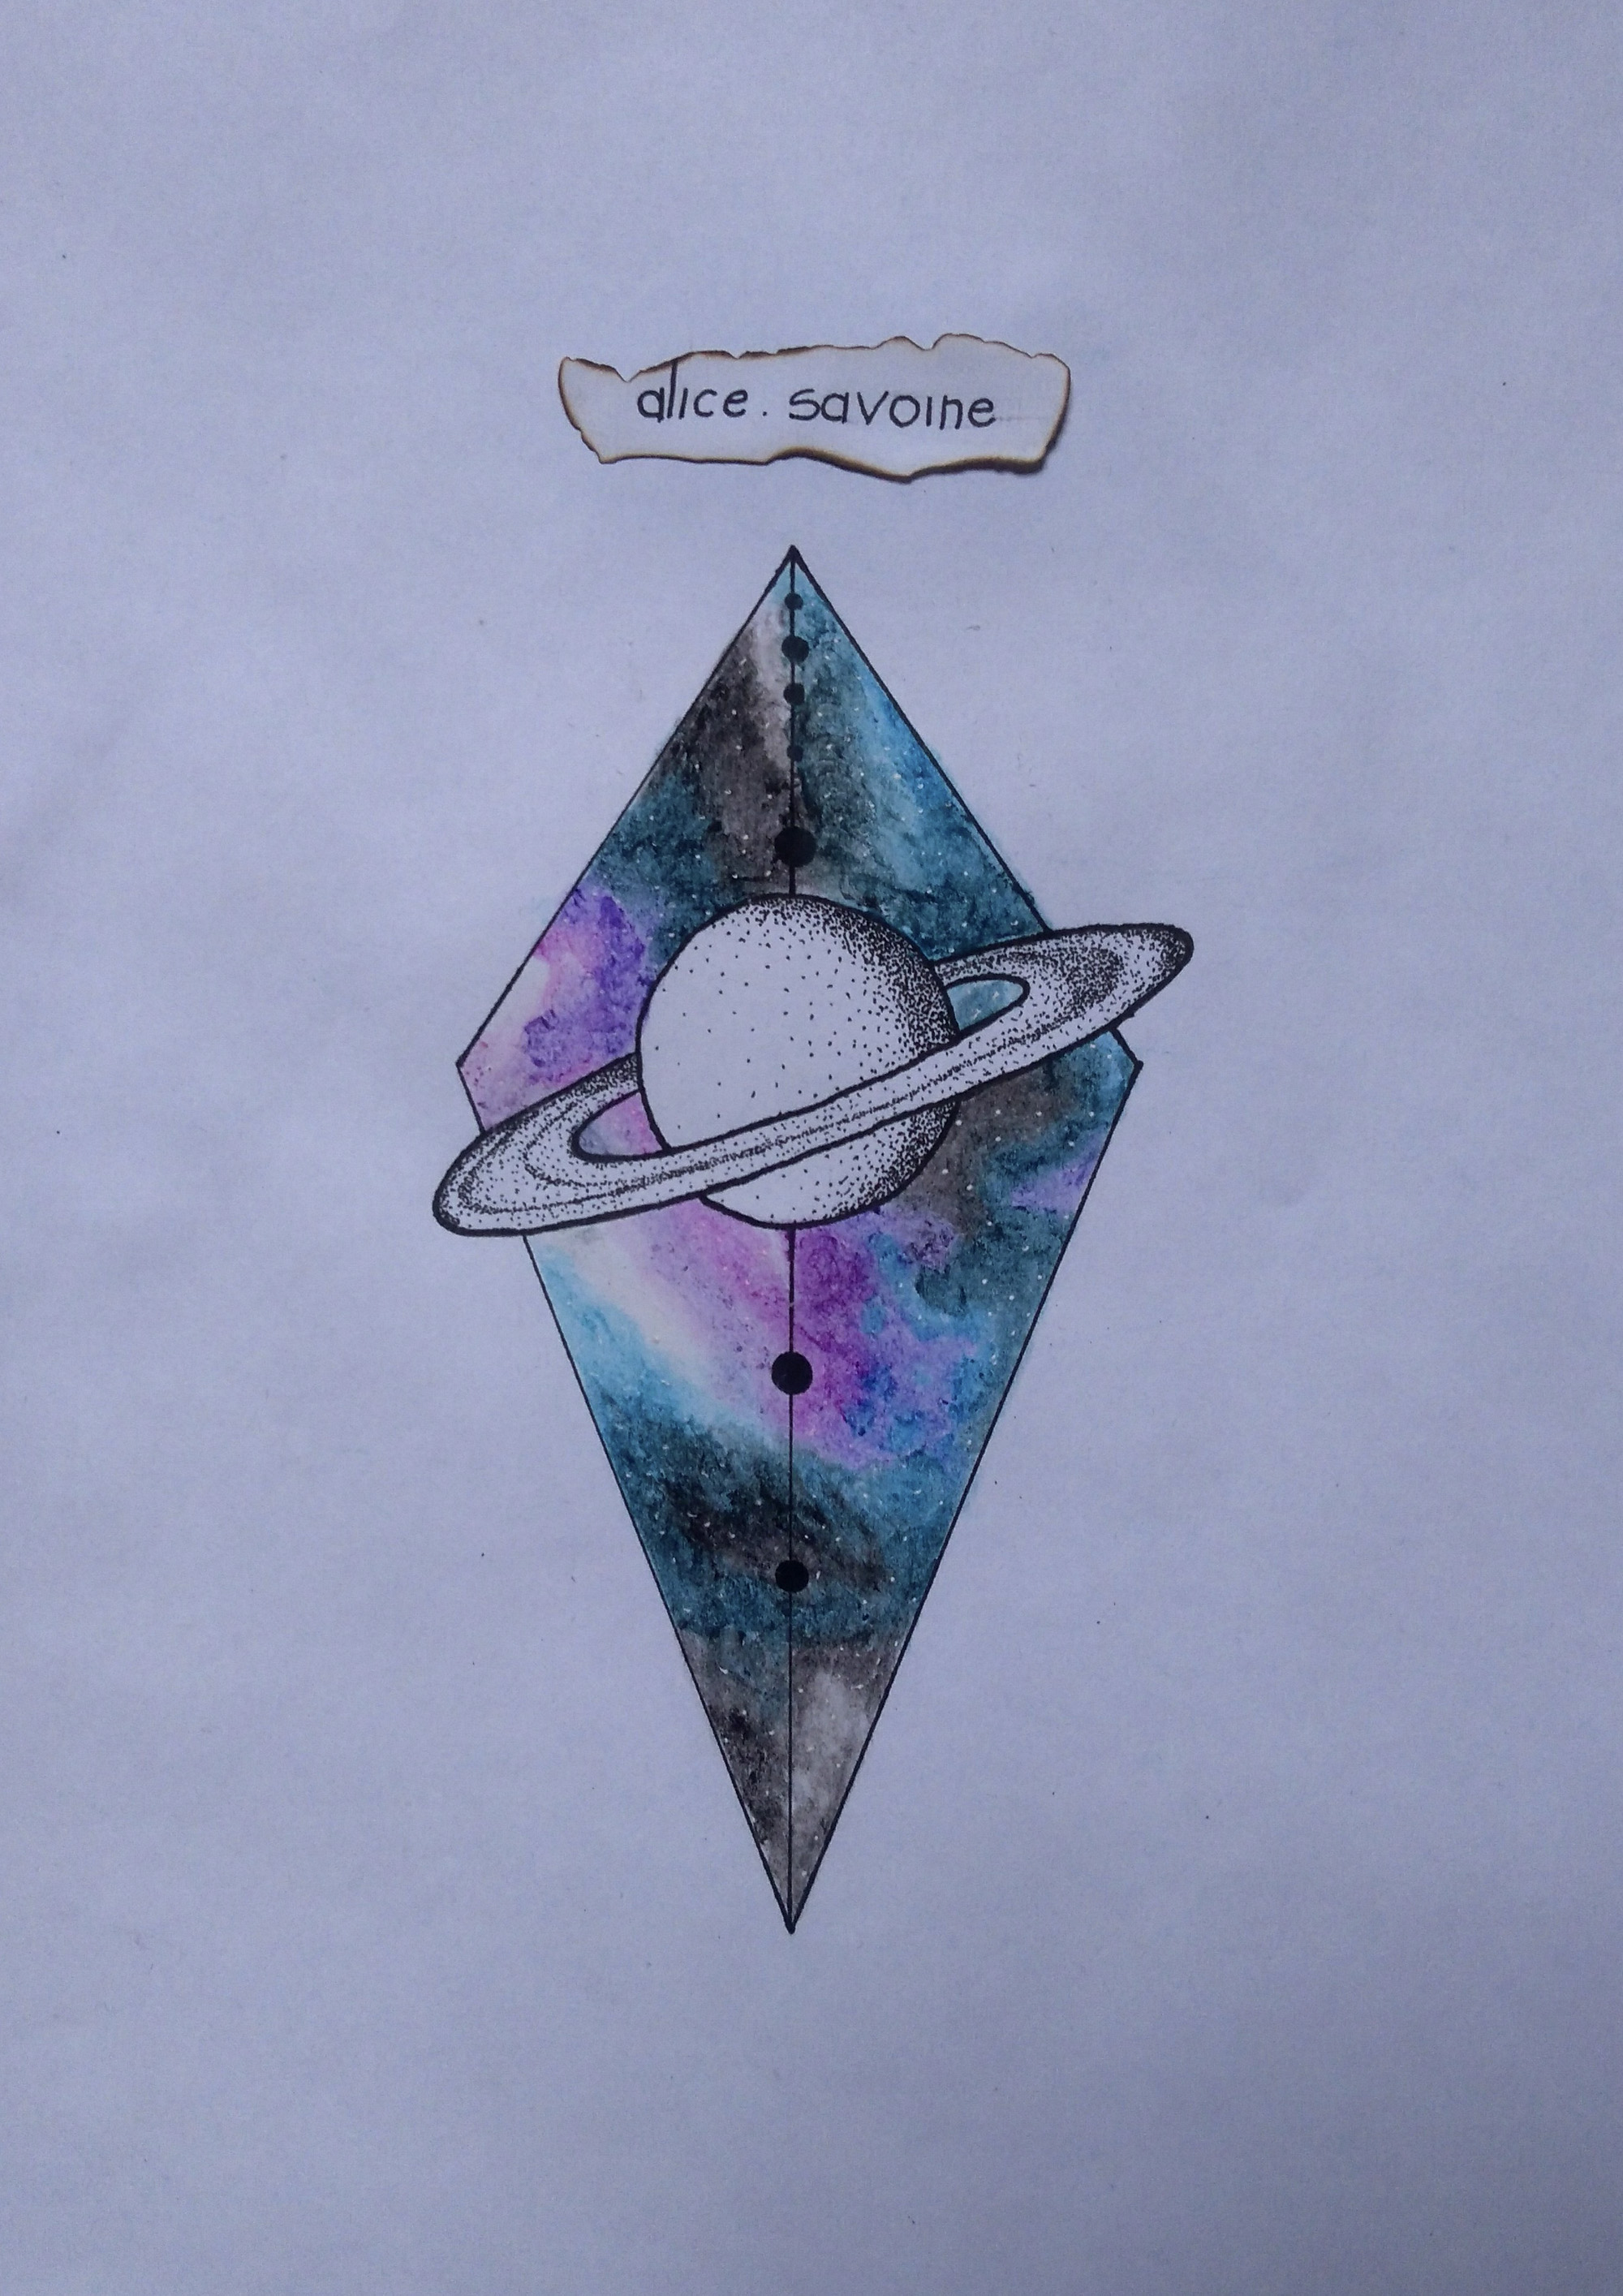 alice. savoine